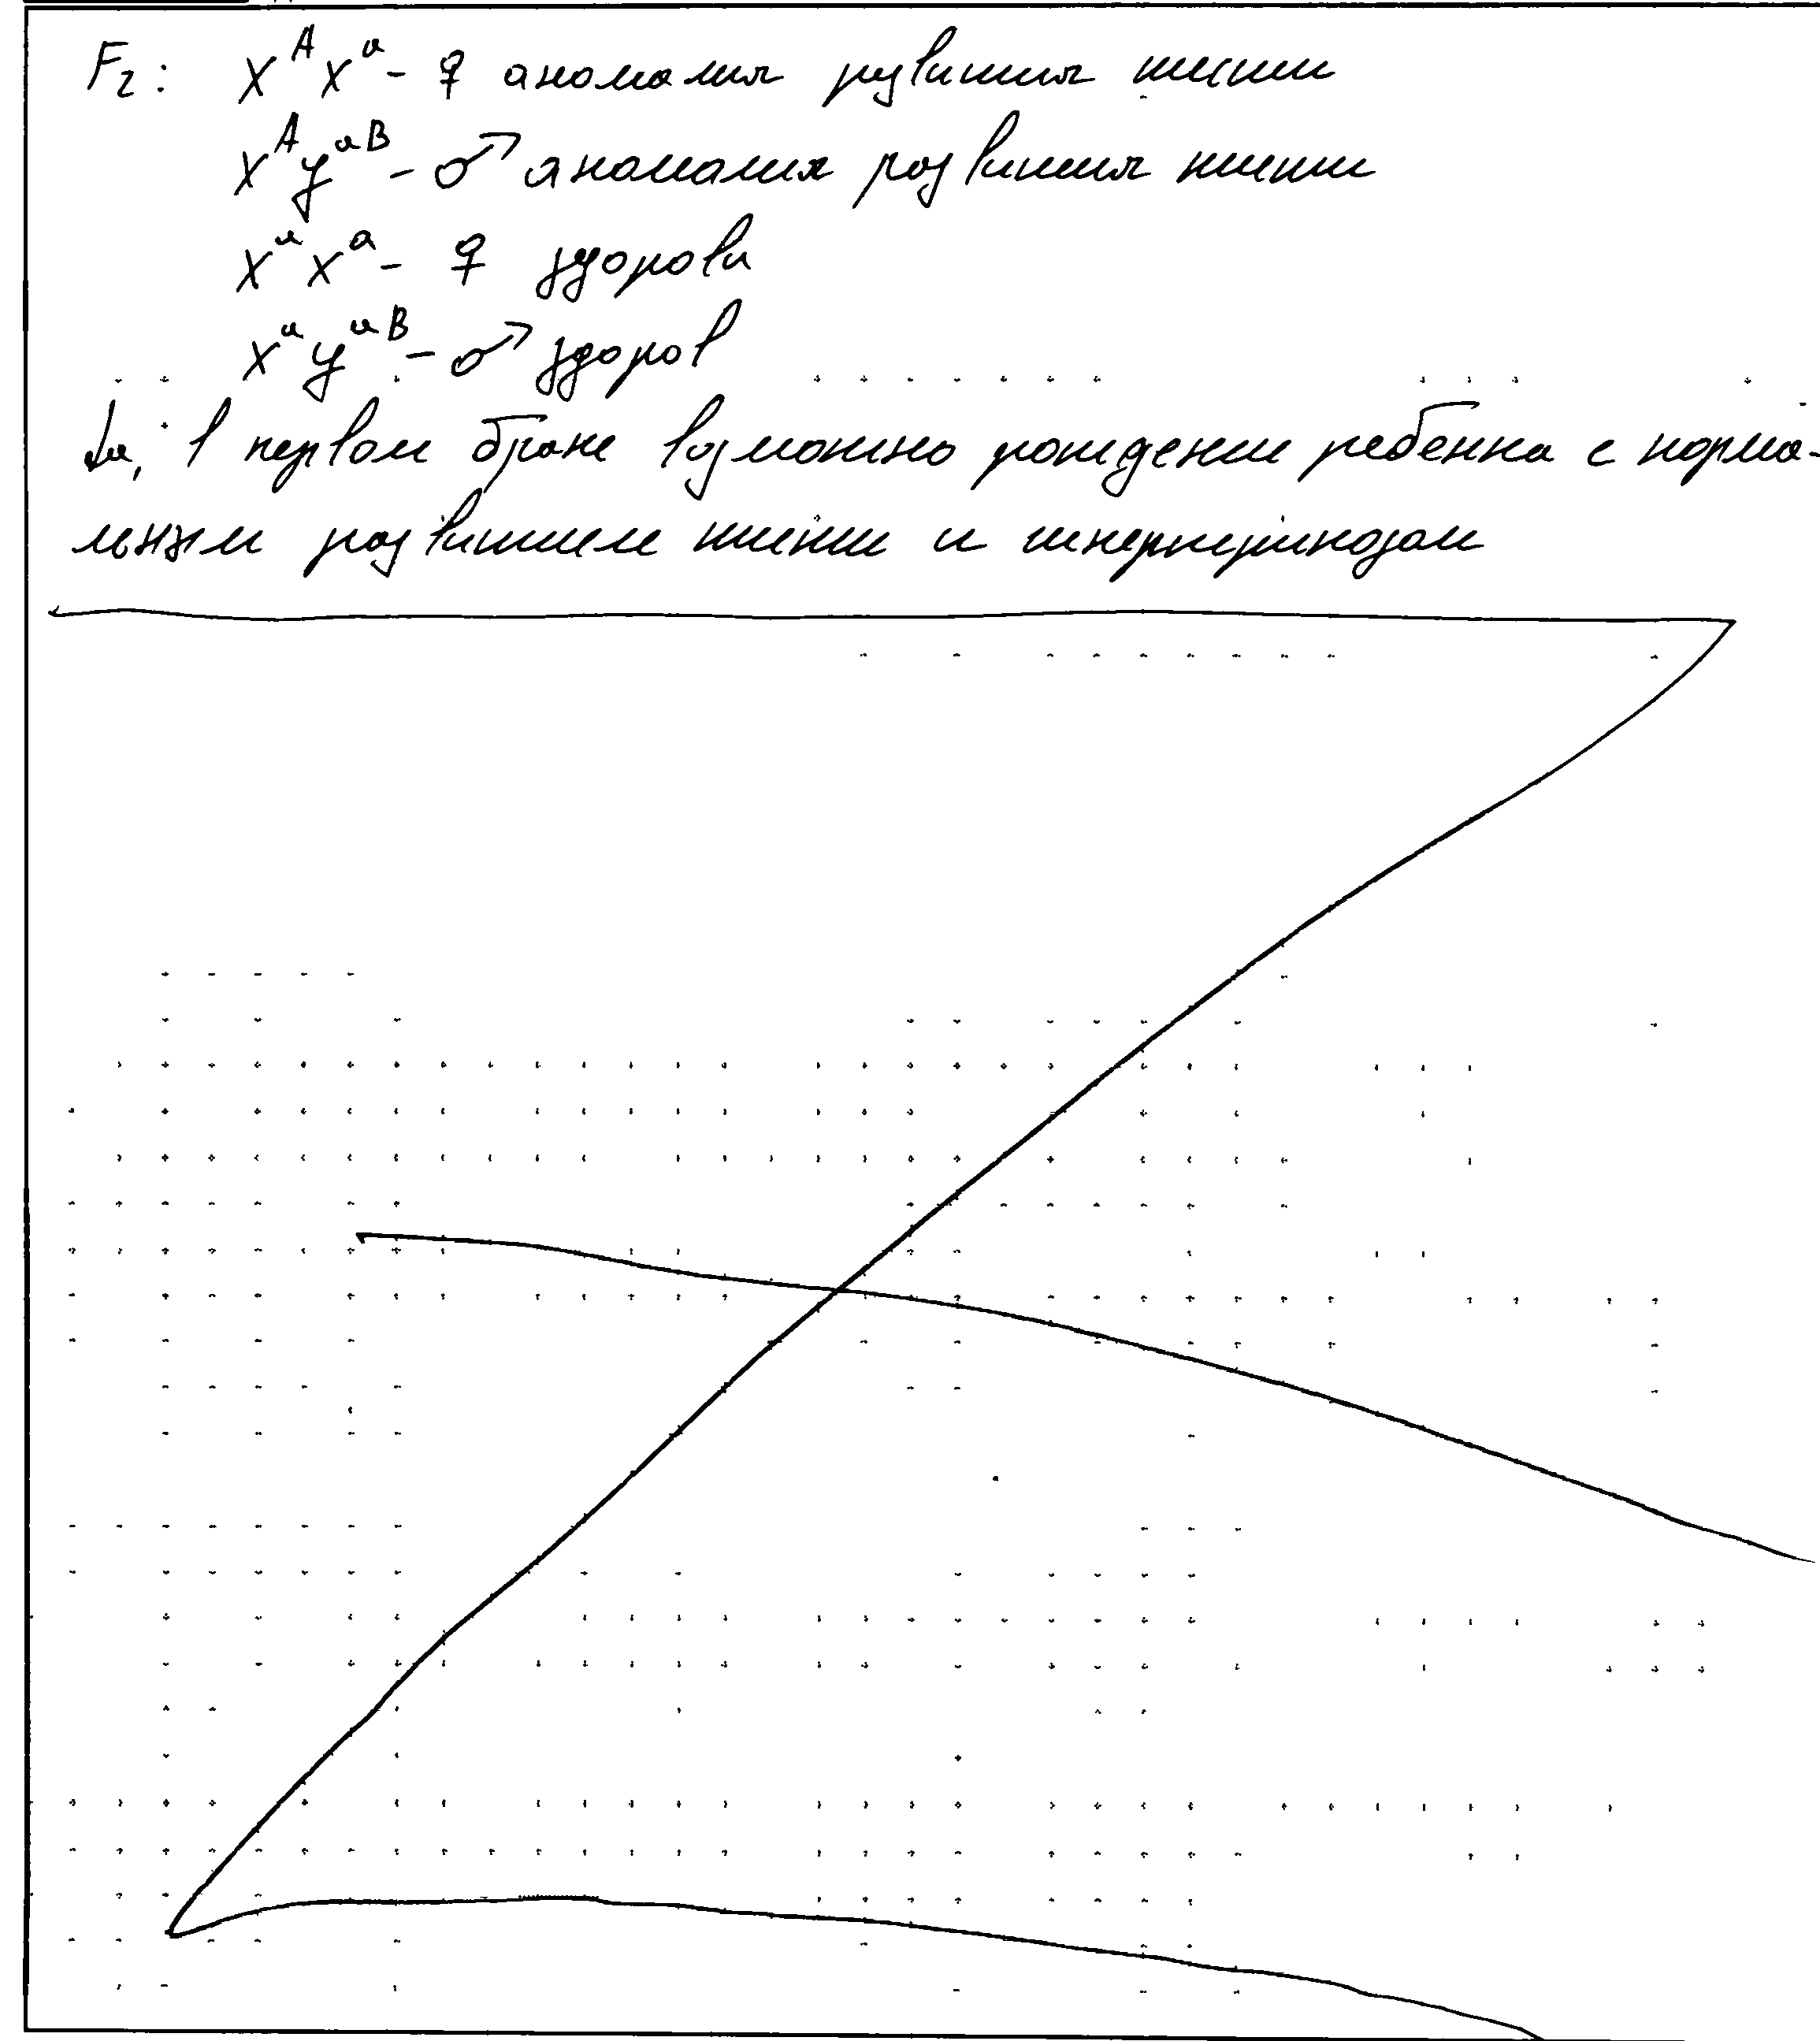 F₂: X^A X^a - ♀ аномалия развития кисти
X^A y^aB - ♂ аномалия развития кисти
X^a X^a - ♀ здорова
X^a y^aB - ♂ здоров
Да, в первом браке возможно рождение ребенка с норма-
льным развитием кисти и гипертрихозом